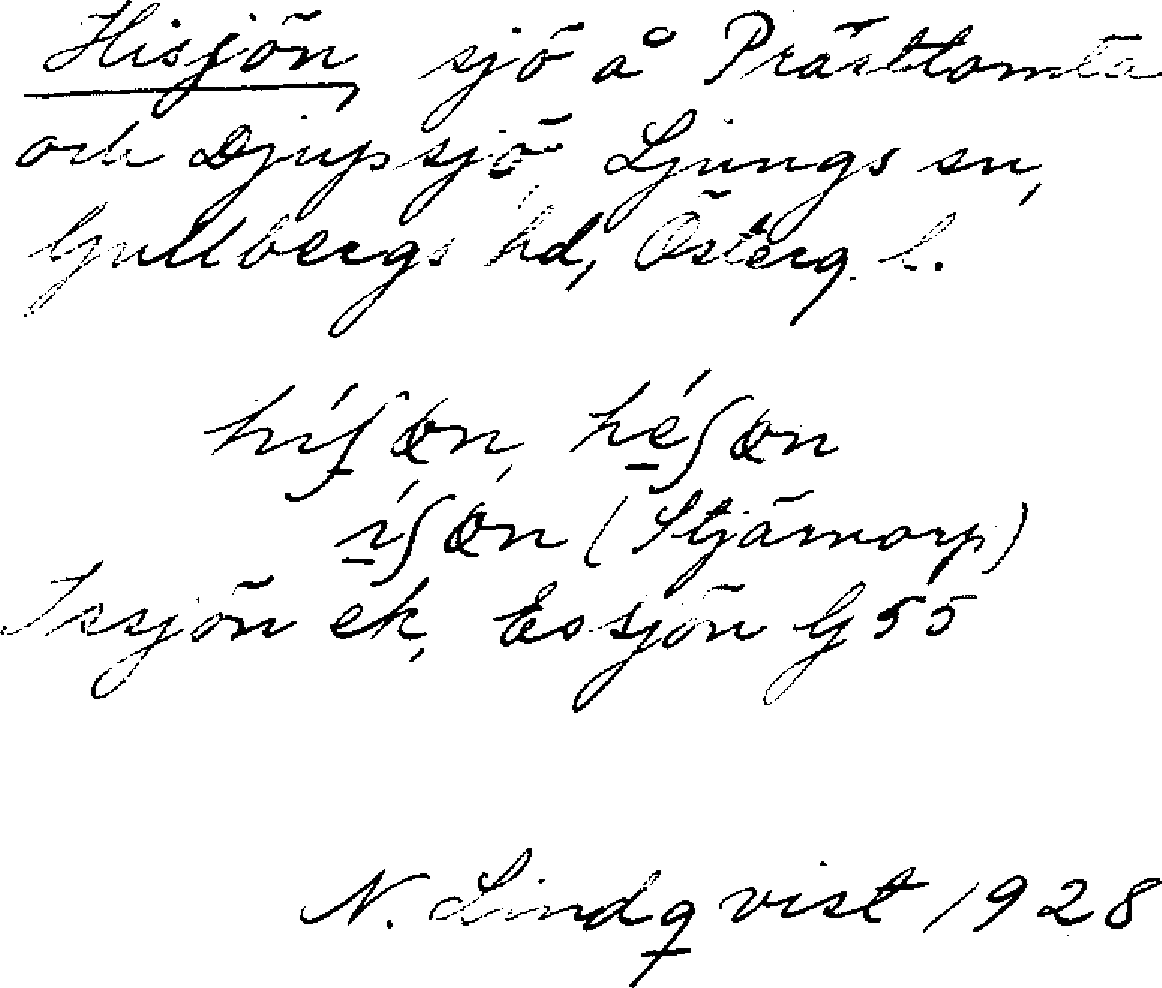 Hisjön, sjö å Prästtomta
och Djupsjö, Ljungs sn,
Gullbergs hd, Österg. l.
híʃøn, héʃøn
íʃøn (Stjärnorp)
Issjön ek, Essjön G 55
N. Lindqvist 1928